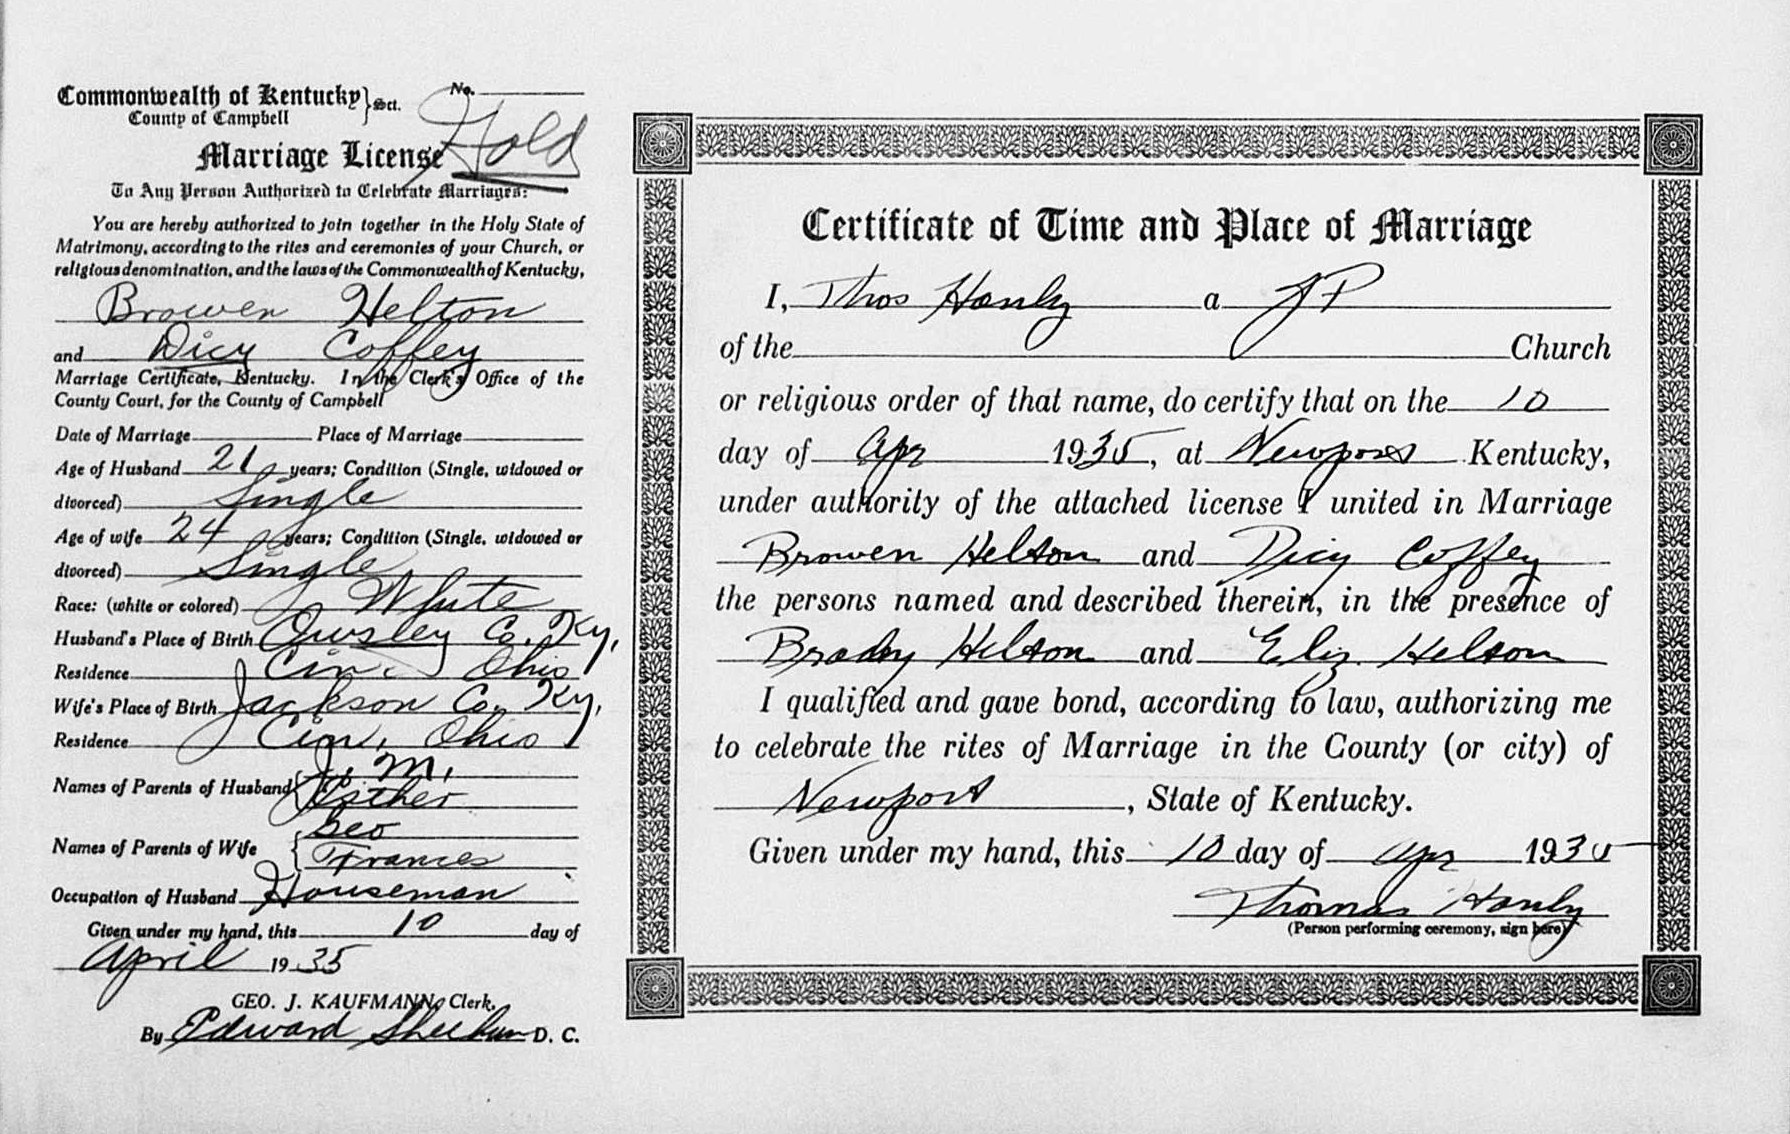 Commonwealth of Kentucky } Sct.
County of Campbell
No.
Hold
Marriage License
To Any Person Authorized to Celebrate Marriages:
You are hereby authorized to join together in the Holy State of
Matrimony, according to the rites and ceremonies of your Church, or
religious denomination, and the laws of the Commonwealth of Kentucky,
Browen Helton
and Dicy Coffey
Marriage Certificate, Kentucky. In the Clerk's Office of the
County Court, for the County of Campbell
Date of Marriage Place of Marriage
Age of Husband 21 years; Condition (Single, widowed or
divorced) Single
Age of wife 24 years; Condition (Single, widowed or
divorced) Single
Race: (white or colored) White
Husband's Place of Birth Owsley Co. Ky,
Residence Cin. Ohio
Wife's Place of Birth Jackson Co. Ky,
Residence Cin, Ohio
Names of Parents of Husband { J. M.
Esther
Names of Parents of Wife { Geo
Frances
Occupation of Husband Houseman
Given under my hand, this 10 day of
April 1935
GEO. J. KAUFMANN, Clerk.
By Edward Sheehan D. C.
Certificate of Time and Place of Marriage
I, Thos Hanly a JP
of the Church
or religious order of that name, do certify that on the 10
day of Apr 1935, at Newport Kentucky,
under authority of the attached license I united in Marriage
Browen Helton and Dicy Coffey
the persons named and described therein, in the presence of
Brady Helton and Eliz. Helton
I qualified and gave bond, according to law, authorizing me
to celebrate the rites of Marriage in the County (or city) of
Newport, State of Kentucky.
Given under my hand, this 10 day of Apr 1935
Thomas Hanly
(Person performing ceremony, sign here)